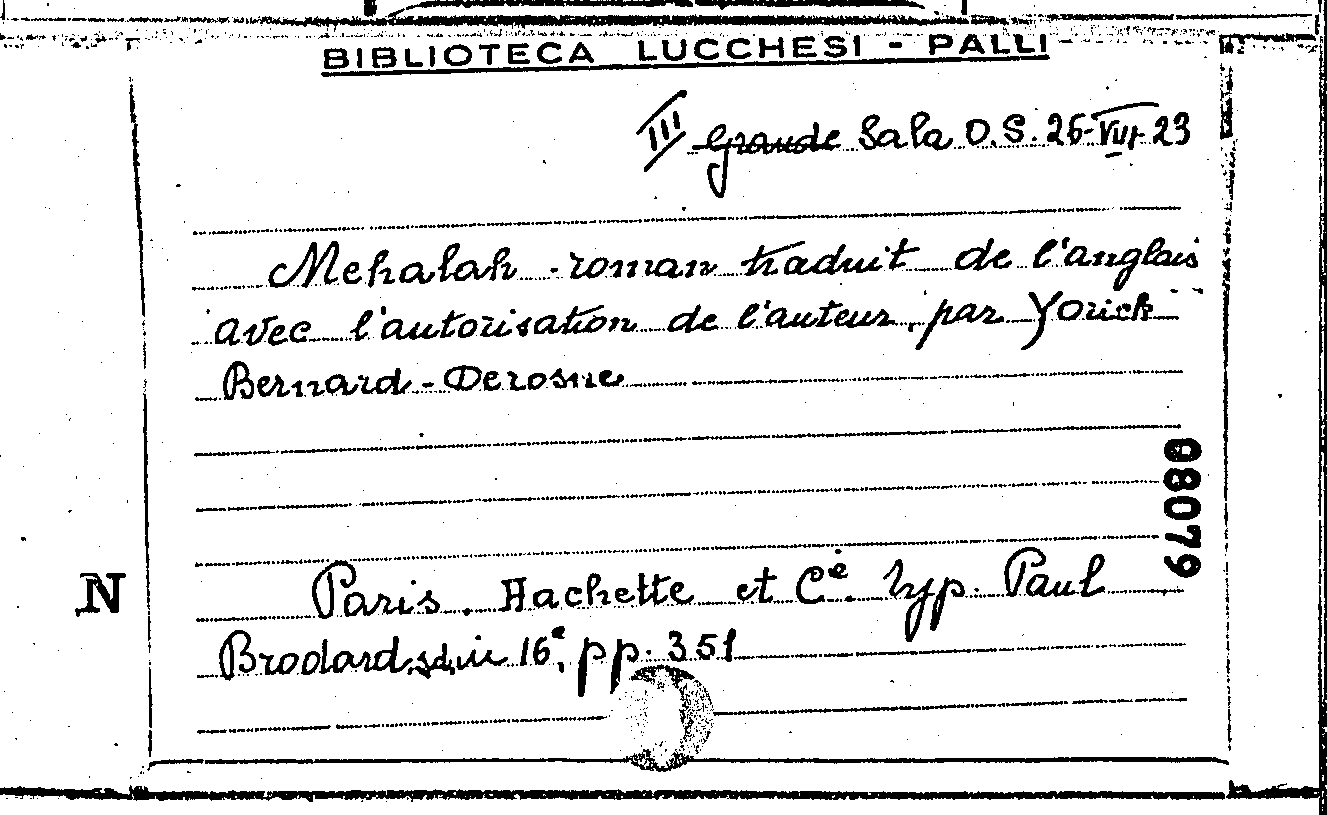 BIBLIOTECA LUCCHESI - PALLI
III Grande Sala O.S. 26-VIII-23
Mehalah - roman traduit de l'anglais
avec l'autorisation de l'auteur, par Yorick
Bernard-Derosne
98079
N
Paris. Hachette et Cè. Typ. Paul
Brodard, sd, in 16°, pp. 351